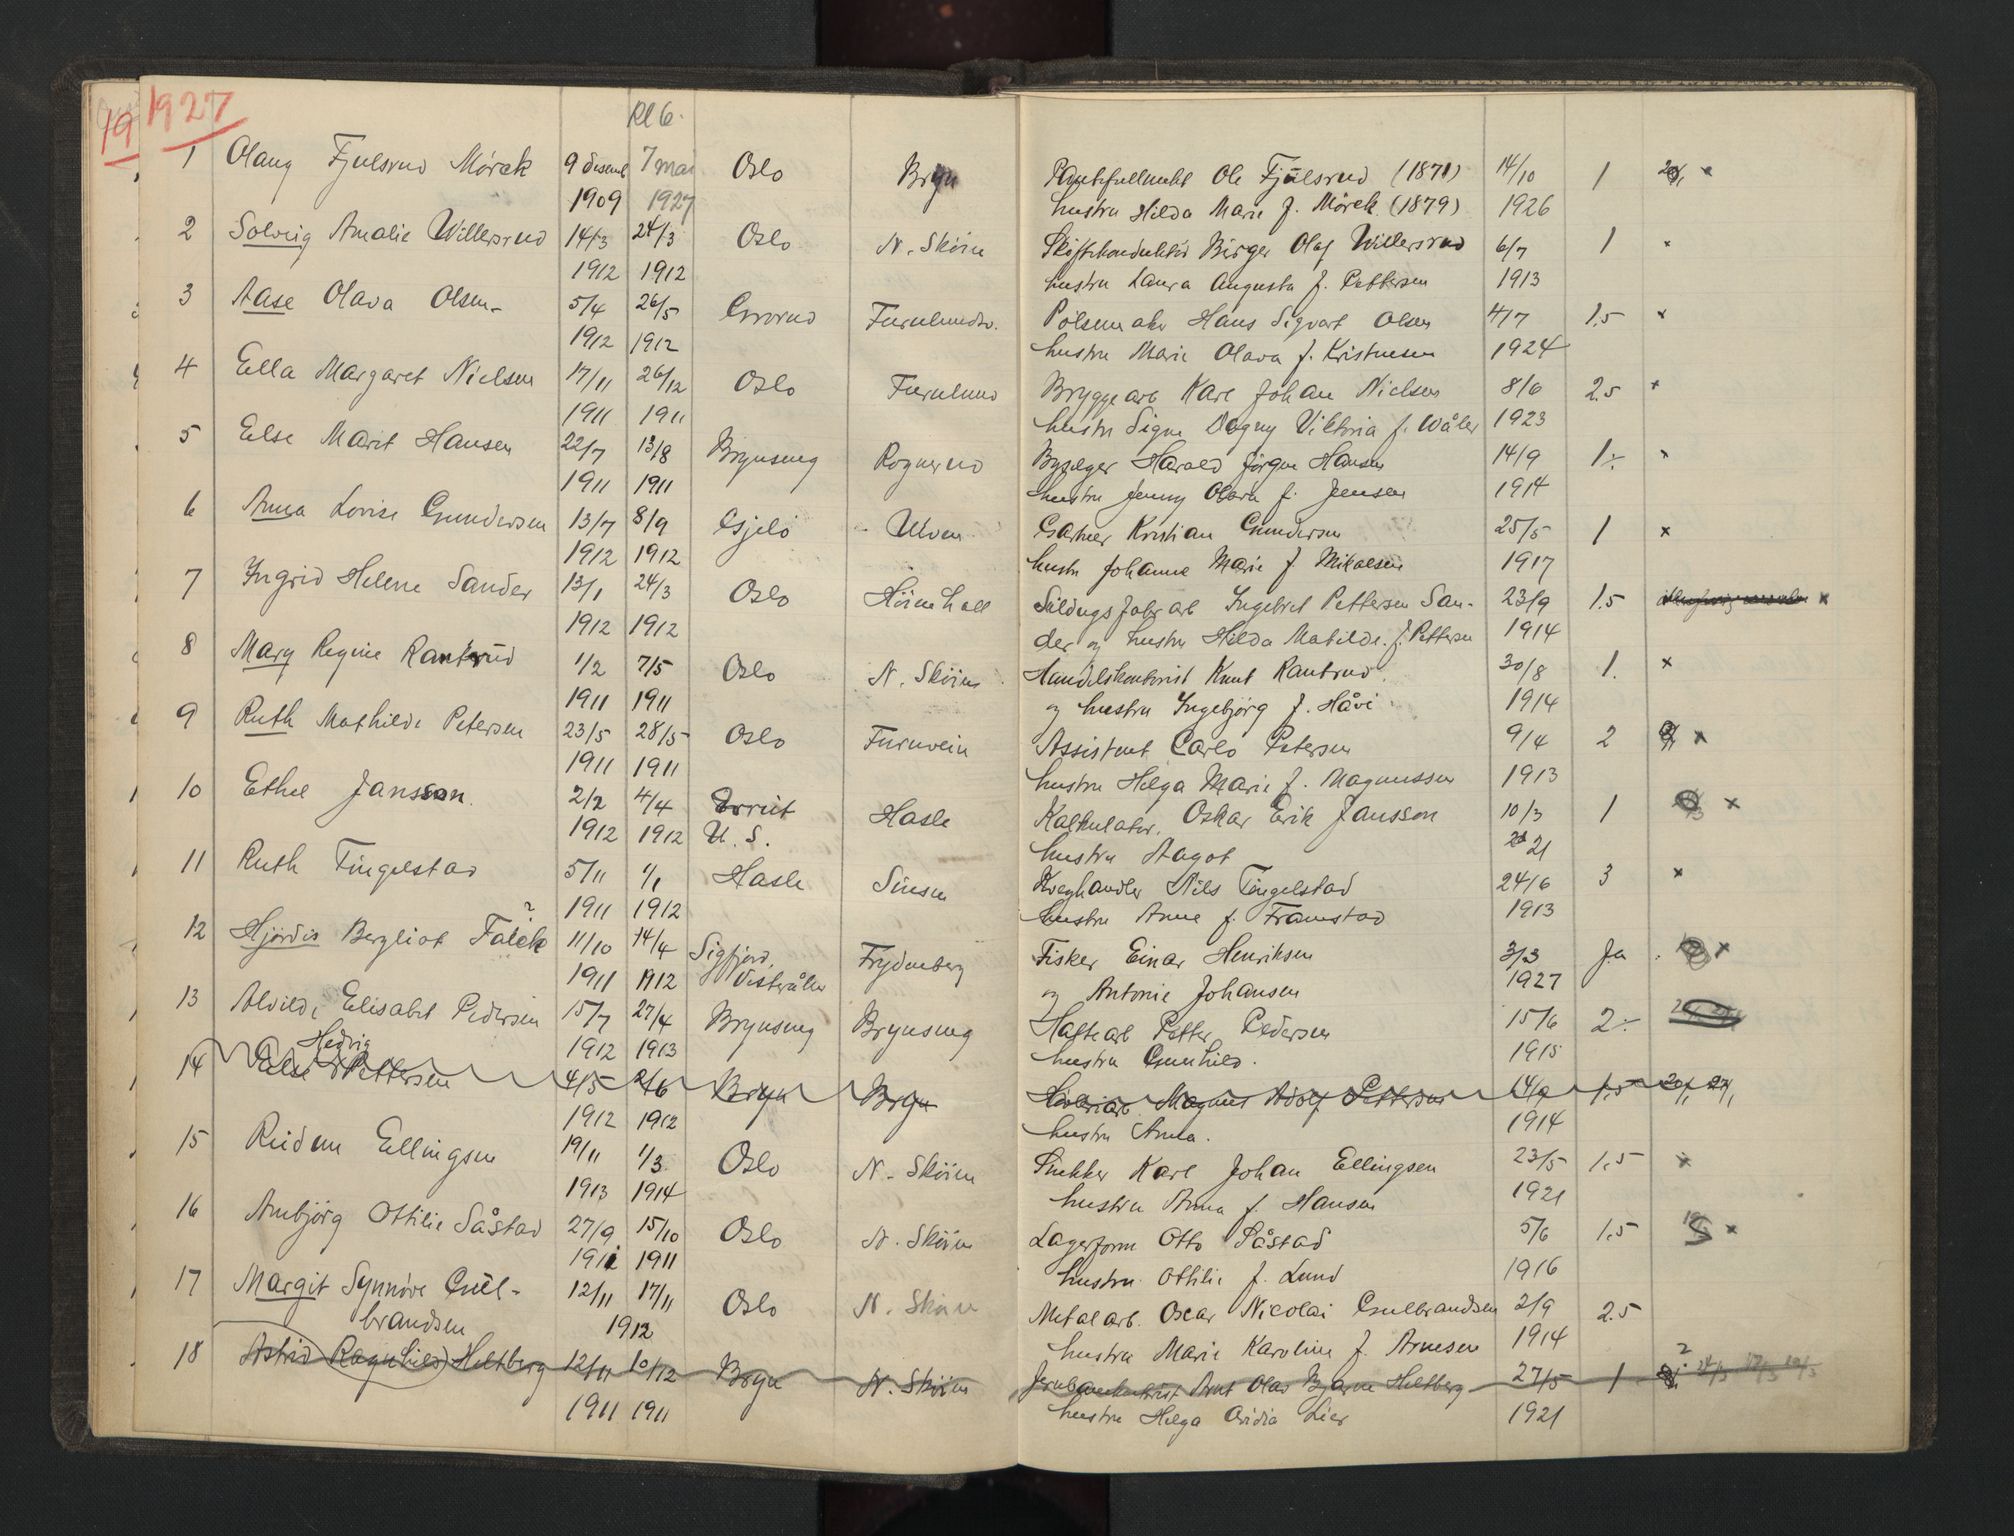 1927
19
Kl 6.
1 Olaug Fjulsrud Mörck 9 desemb 7 mai Oslo Bryn Ole Fjulsrud (1871) 14/10 1 ×
1909 1927 hustru Hilda Marie f. Mörck (1879) 1926
2 Solveig Amalie Willersrud 14/3 24/3 Oslo N. Sköien Birger Olaf Willersrud 6/7 1 ×
1912 1912 hustru Laura Augusta f. Pettersen 1913
3 Aase Olava Olsen 5/4 26/5 Grorud Furulundsv. Pölsemaker Hans Sigvart Olsen 4/7 1.5 ×
1912 1912 hustru Marie Olava f. Kristensen 1924
4 Ella Margaret Nielsen 17/11 26/12 Oslo Furulund Bryggearb Karl Johan Nielsen 8/6 2.5 ×
1911 1911 hustru Signe Dagny Viktoria f. Wåler 1923
5 Else Marit Hansen 22/7 13/8 Brynseng Rognerud Harald Jörgen Hansen 14/9 1÷ ×
1911 1911 hustru Jenny Olava f. Jensen 1914
6 Anna Lovise Gundersen 13/7 8/9 Gjelö Ulven Gartner Kristian Gundersen 25/5 1 ×
1912 1912 hustru Johanne Marie f Mikalsen 1917
7 Ingrid Helene Sander 13/1 24/3 Oslo Ingebret Pettersen San-
1912 1912 der og hustru Hilda Matilde f. Pettersen 23/9 1.5 ×
1914
8 Mary Regine Rantrud 1/2 7/5 Oslo N. Sköien Handelskontorist Knut Rantrud. 30/8 1. ×
1911 1911 og hustru Ingebjörg f. Håvi 1914
9 Ruth Mathilde Petersen 23/5 28/5 Oslo Furuvein Assistent Carlo Petersen 9/4 2 ×
1911 1911 hustru Helga Marie f. Magnussen 1913
10 Ethel Jansson. 2/2 4/4 Hasle Kalkulatör. Oskar Erik Jansson 10/3 1 ×
1912 1912 U. S. hustru Aagot 21
11 Ruth Tingelstad 5/11 1/1 Hasle Sinsen Kveghandler Nils Tingelstad 24/6 3 ×
1911 1912 hustru Anne f. Framstad 1913
12 Hjördis Bergliot Falck ? 11/10 14/4 Sigfjord, Frydenberg Fisker Einar Henriksen 3/3 Ja ×
1911 1912 Vesterålen og Antonie Johansen 1927
13 Alvilde Elisabet Pedersen 15/7 27/4 Brynseng Brynseng Petter Pedersen 15/6 2÷
1912 1913 hustru Gunhild. 1915
Hedvig
14 Else Pettersen 4/5 2/6 Bryn Bryn Magnus Adolf Pettersen 14/9 1.5
1912 1912 hustru Anna. 1914
15 Reidun Ellingsen 19/11 1/3 Oslo N. Sköien Snekker Karl Johan Ellingsen 23/5 1.5 ×
1913 1914 hustru Anna f. Hansen 1921
16 Ambjörg Ottilie Såstad 27/9 15/10 Oslo N. Sköien Lagerform Otto Såstad 5/6 1.5 ×
1911 1911 hustru Ottilie f. Lund 1916
17 Margit Synnöve Gul- 12/11 17/11 Oslo N. Sköien Metalarb. Oscar Nicolai Gulbrandsen 2/9 2.5
brandsen 1912 hustru Marie Karoline f. Arnesen 1914
18 Astrid Ragnhild Heltberg 12/11 10/12 Bryn N. Sköien Arnt Olav Bjarne Heltberg 27/5 1 ?
1911 1911 hustru Helga Lier 1921